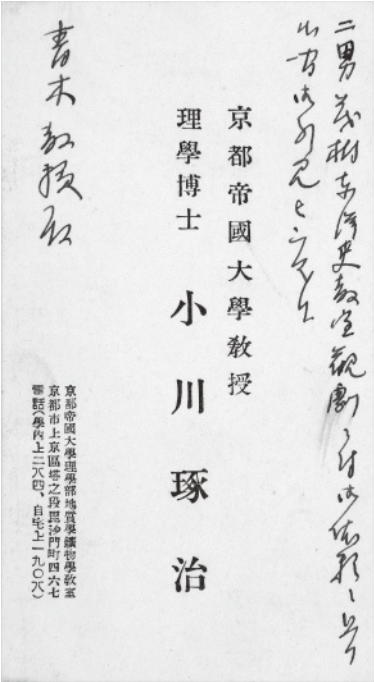 二男茂樹東洋史教室観劇
京都帝國大學教授
理學博士 小川琢治
京都帝國大學理學部地質學鑛物學教室
京都市上京區塔之段毘沙門町四六七
電話(學內上二八四、自宅上一九〇八)
青木教授